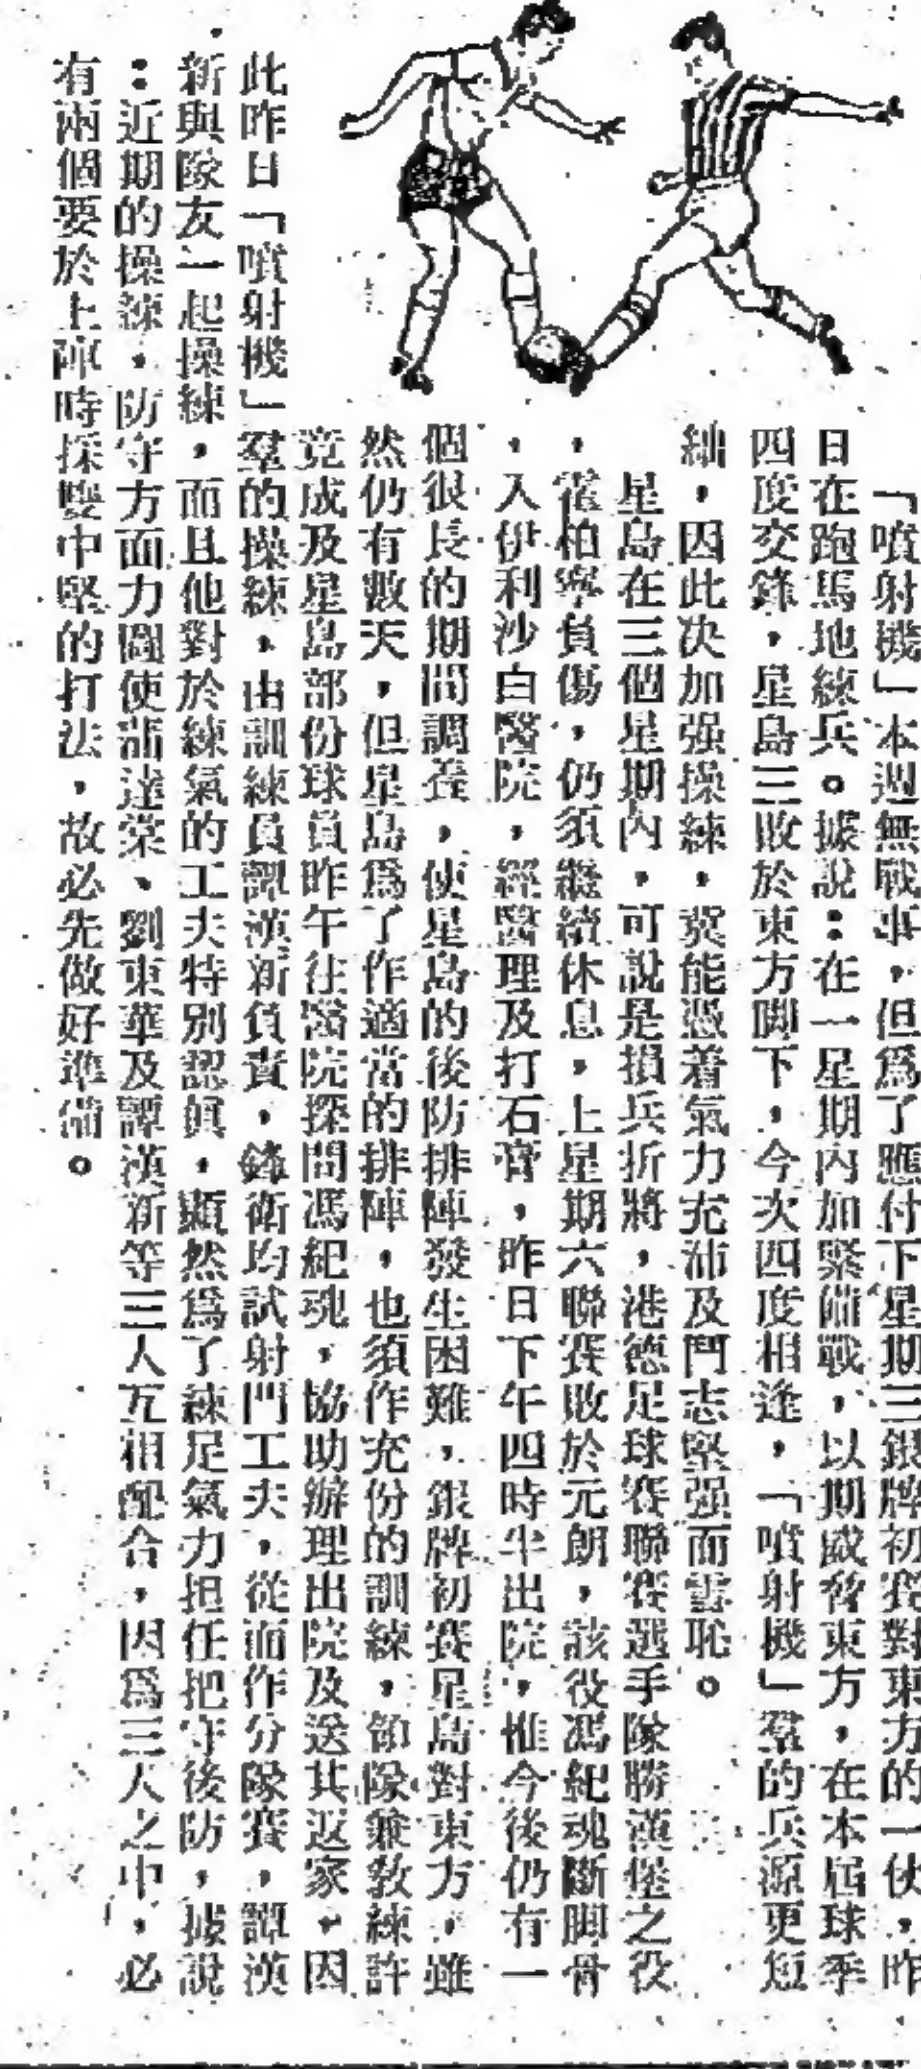 「噴射機」本週無戰事，但爲了應付下星期三銀牌初賽對東方的一仗，昨
日在跑馬地練兵。據說：在一星期內加緊備戰，以期威脅東方，在本屆球季
四度交鋒，星島三敗於東方脚下，今次四度相逢，「噴射機」羣的兵源更短
絀，因此决加强操練，冀能憑着氣力充沛及鬥志堅强而雪恥。
星島在三個星期內，可說是損兵折將，港德足球賽聯賽選手隊勝漢堡之役
，霍柏寧負傷，仍須繼續休息，上星期六聯賽敗於元朗，該役馮紀魂斷脚骨
，入伊利沙白醫院，經醫理及打石膏，昨日下午四時半出院，惟今後仍有一
個很長的期間調養，使星島的後防排陣發生困難，銀牌初賽星島對東方，雖
然仍有數天，但星島爲了作適當的排陣，也須作充份的訓練，領隊兼敎練許
竟成及星島部份球員昨午往醫院探問馮紀魂，協助辦理出院及送其返家，因
此昨日「噴射機」羣的操練，由訓練員譚漢新負責，鋒衛均試射門工夫，從而作分隊賽，譚漢
新與隊友一起操練，而且他對於練氣的工夫特別認眞，顯然爲了練足氣力担任把守後防，據說
：近期的操練，防守方面力圖使諸達棠、劉東華及譚漢新等三人互相配合，因爲三人之中，必
有兩個要於上陣時採雙中堅的打法，故必先做好準備。